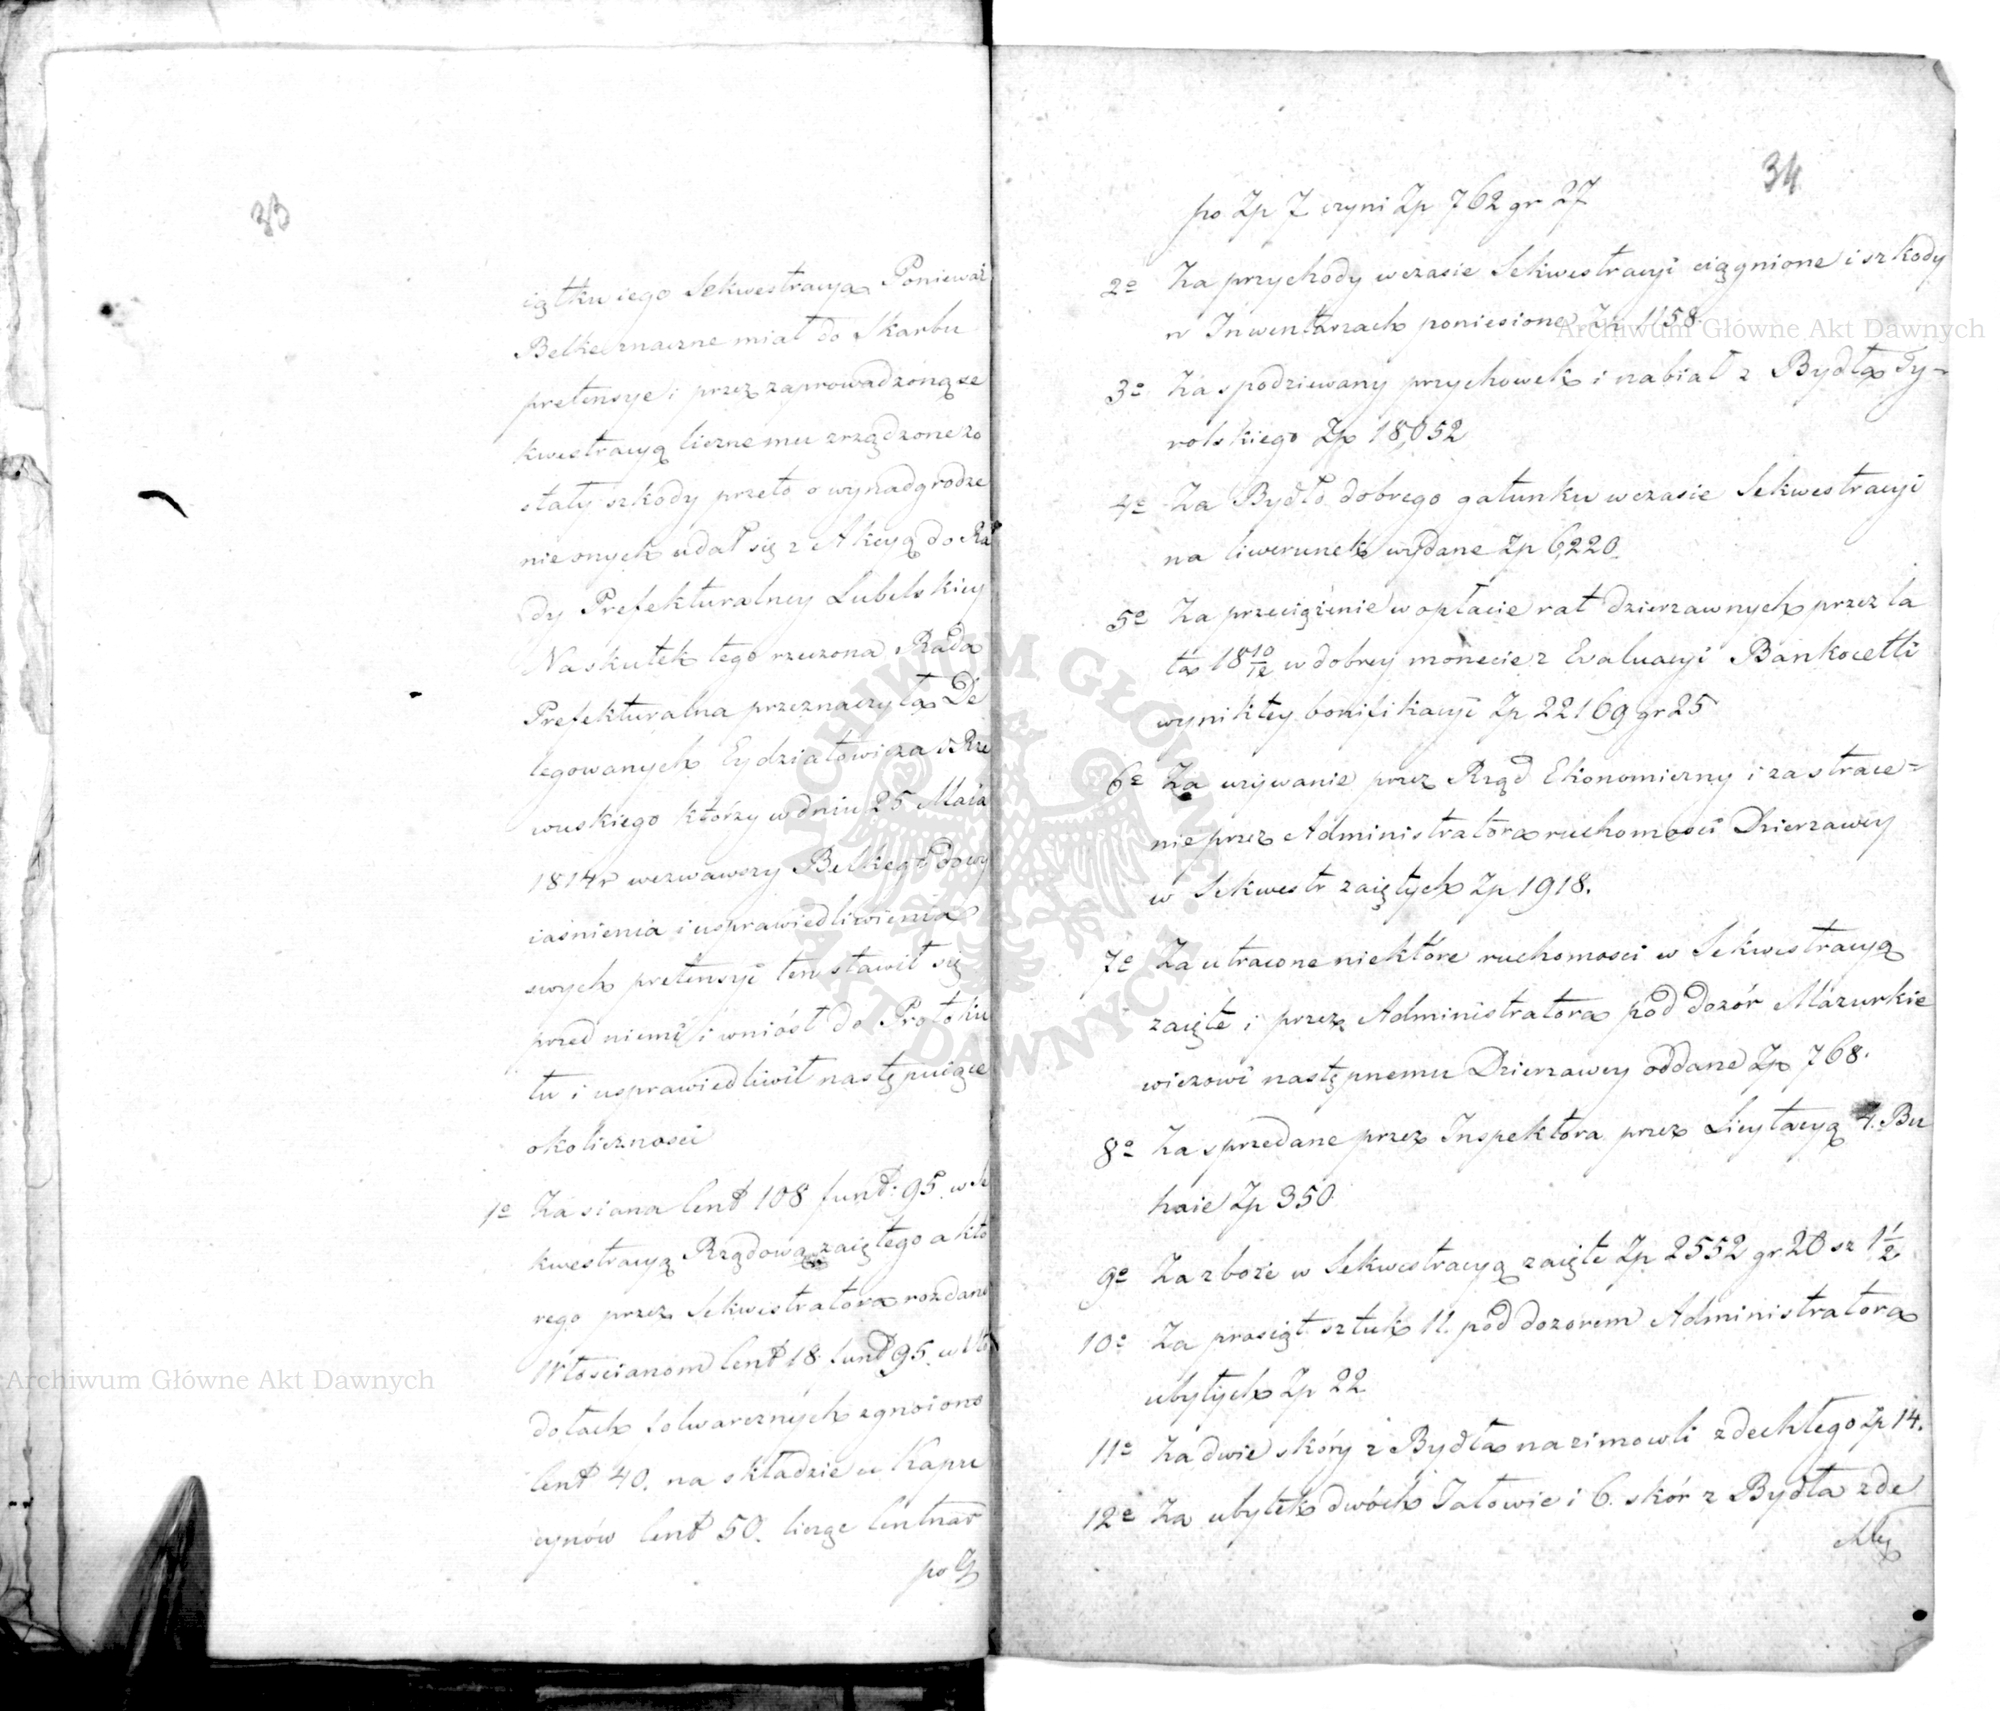 33
iątku iego Sekwestracya, Ponieważ
Belke znaczne miał do Skarbu
pretensye i przez zaprowadzoną se
kwestracyą liczne mu zrządzone zo
stały szkody przeto o wynadgrodze
nie onych udał się z Akcyą do Ra
dy Prefekturalney Lubelskiey
Na skutek tego rzeczona Rada
Prefekturalna przeznaczyła De
legowanych Eydziatowicza i Rze
wuskiego którzy w dniu 25 Maia
1814 r wezwawszy Belkego do wy
iaśnienia i usprawiedliwienia
swych pretensyi ten stawił się
przed niemi i wniósł do Protoku
łu i usprawiedliwił następuiące
okoliczności
1o Za siana Cent 108 funt: 95. w Se
kwestracyą Rządową zaiętego a któ
rego przez Sekwestratora rozdano
Włościanom Cent 18. funt 95. w sto
dołach folwarcznych zgnoiono
Cent 40. na składzie u Kapu
cynów Cent 50. licząc Centnar
po Z
34
po Zp 7 czyni Zp 762 gr 27
2o Za przychody w czasie Sekwestracyi ciągnione i szkody
w Inwentarzach poniesione Zp 1158.
3o Za spodziewany przychowek i nabiał z Bydła Ty-
rolskiego Zp 18,052
4o Za Bydło dobrego gatunku w czasie Sekwestracyi
na liwerunek wydane Zp 6,220.
5o Za przeciążenie w opłacie rat dzierzawnych przez la
ta 18 10/12 w dobrey monecie z Ewaluacyi Bankocetli
wynikłey bonifikacyi Zp 22169 gr 25
6o Za używanie przez Rząd Ekonomiczny i za strace=
nie przez Administratora ruchomości Dzierzawcy
w Sekwestr zaiętych Zp 1918.
7o Za utracone niektóre ruchomości w Sekwestracyą
zaięte i przez Administratora pod dozór Mazurkie
wiczowi następnemu Dzierzawcy oddane Zp 768.
8o Za sprzedane przez Inspektora przez Licytacyą 4. Bu
haie Zp 350
9o Za zboże w Sekwestracyą zaięte Zp 2552 gr 20 sz 1 1/2
10o Za prosiąt sztuk 11. pod dozorem Administratora
ubyłych Zp 22
11o Za dwie skóry z Bydła na zimowli zdechłego Zp 14.
12o Za ubytek dwóch Jałowic i 6. skór z Bydła zde
Archiwum Główne Akt Dawnych
Archiwum Główne Akt Dawnych
ARCHIWUM GŁÓWNE AKT DAWNYCH